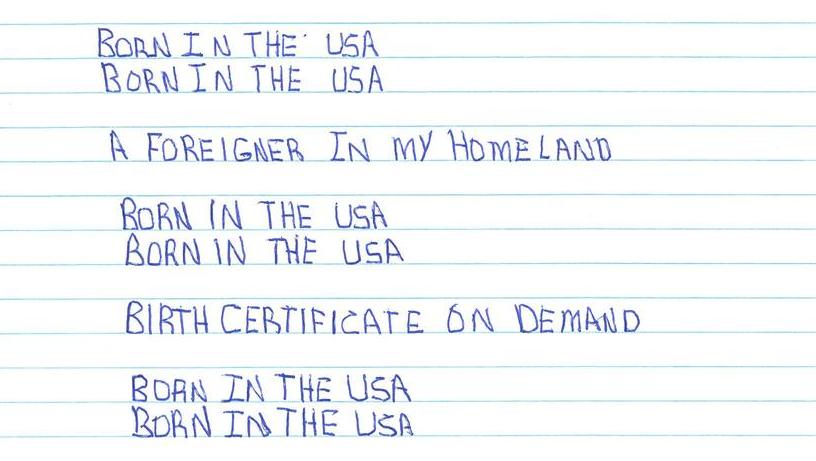 BORN IN THE USA
BORN IN THE USA
A FOREIGNER IN MY HOMELAND
BORN IN THE USA
BORN IN THE USA
BIRTH CERTIFICATE ON DEMAND
BORN IN THE USA
BORN IN THE USA